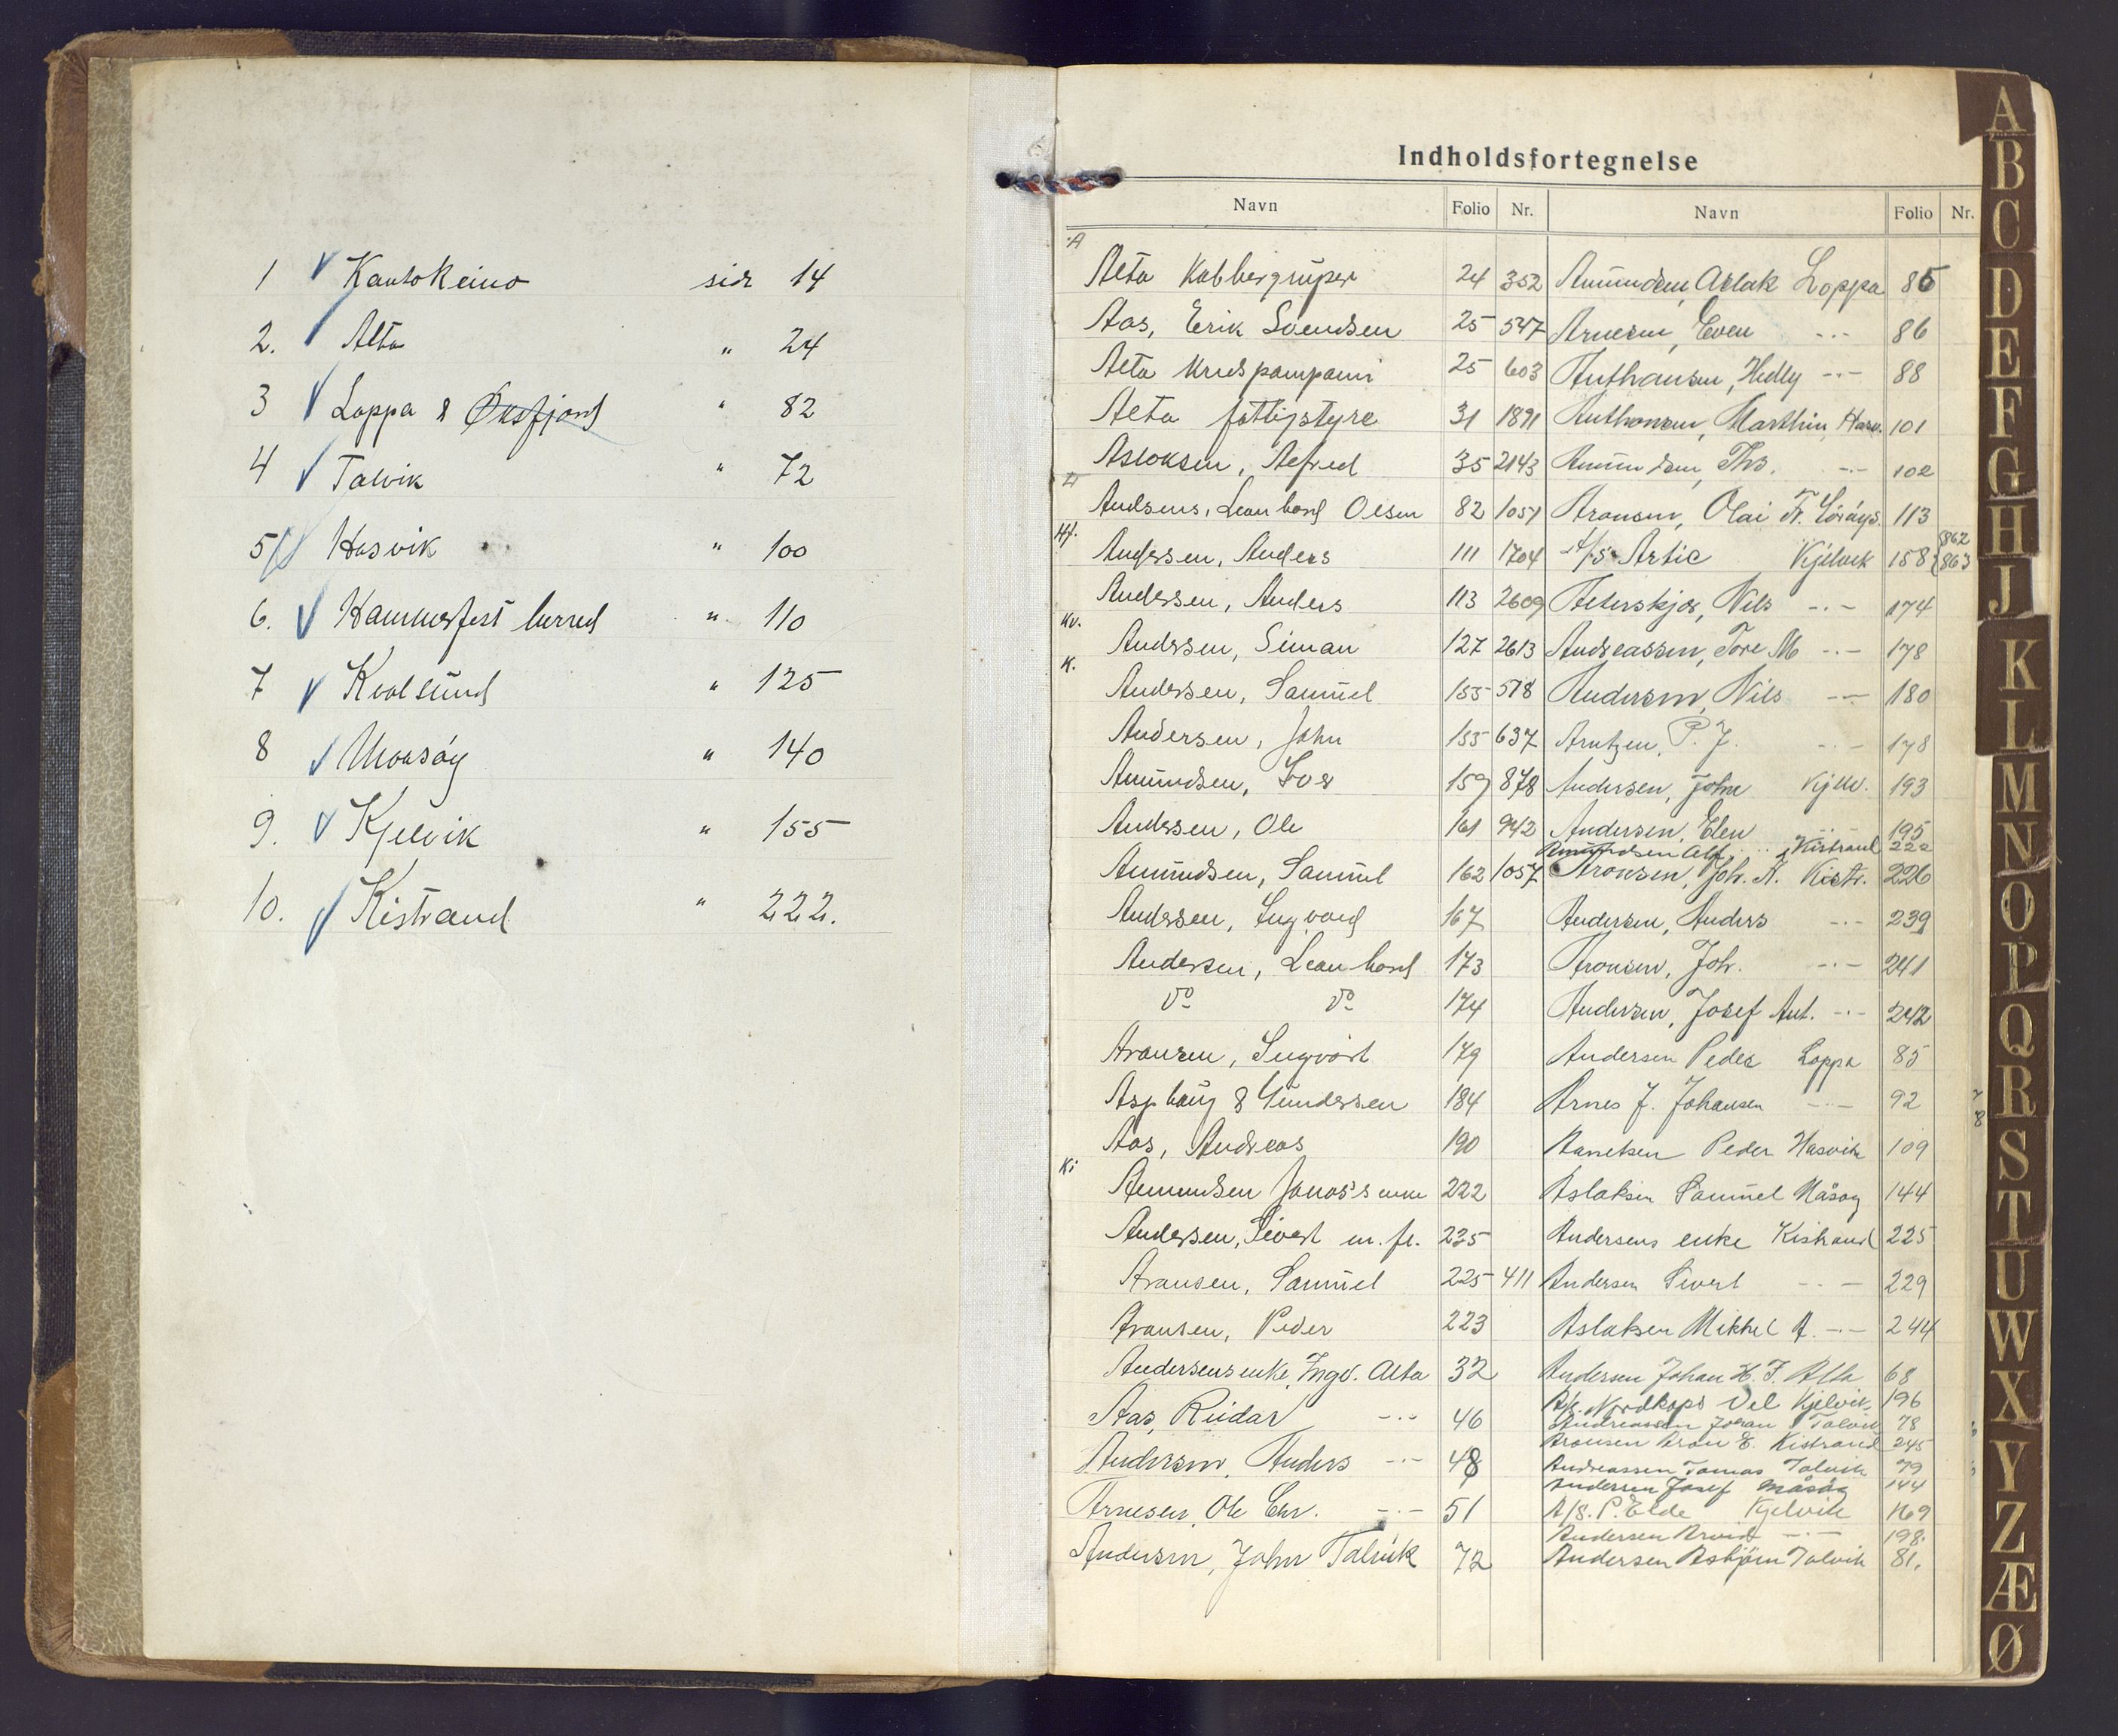 1 Kautokeino side 14
2. Alta " 24
3 Loppa & Øksfjord " 82
4 Talvik " 72
5 Hasvik " 100
6. Hammerfest herred " 110
7 Kvalsund " 125
8 Maasøy " 140
9. Kjelvik " 155
10. Kistrand " 222.
Indholdsfortegnelse
Navn Folio Nr. Navn Folio Nr.
A
Alta Kobbergruper 24 352
Aas, Erik Svendsen 25 547
Alta 25 603
Alta fattigstyre 31 1891
Asloksen, Alfred 35 2143
Andsens, Leonhard Olsen 82 1051
Hf.
Andersen, Anders 111 1704
Andersen, Anders 113 2609
Kv.
Andersen, Siman 127 2613
K.
Andersen, Samuel 155 518
Andersen, John 155 637
Amundsen, 159 878
Andersen, Ole 161 942
Amundsen, Samuel 162 1057
Andersen, Ingvard 167
Andersen, Leonhard 173
do do 174
Aronsen, Ingvart 179
Asphaug & Gundersen 184
Aas, Andreas 190
Ki
Amundsen Jonas's enke 222
Andersen, Sivert m. fl. 225
Aronsen, Samuel 225 411
Aronsen, Peder 223
Andersens enke, Ingv. Alta 32
Aas, Reidar -"- 46
Andersen, Anders -"- 48
Arnesen, Ole Chr. -"- 51
Andersen, John Talvik 72
Amundsen, Aslak Loppa 85
Arnesen, Even -"- 86
Anthonsen, Hedly -"- 88
Anthonsen, Marthin Hasv. 101
Amundsen, Ths. -"- 102
Aronsen, Olai Fr. Sörøys. 113
A/S Artic Kjelvik 158 862 863
Aeterskjær, Nils -"- 174
Andreassen, Tore M -"- 178
Andersen, Nils -"- 180
Arntzen, P. J. -"- 178
Andersen, John Kjelv. 193
Andersen, Elen -"- 195
Amundsen Alf. Kistrand 222
Aronsen, Joh. A. Kistr. 226
Andersen, Anders -"- 239
Aronsen, Joh. -"- 241
Andersen, Josef Ant. -"- 242
Andersen Peder Loppa 85
Arnes J. Johansen -"- 92
Peder Hasvik 109
Aslaksen Samuel Måsøy 144
Andersens enke Kistrand 225
Andersen Sivert -"- 229
Aslaksen Mikkel A. -"- 244
Andersen Johan H. J. Alta 68
A/S. Nordkaps Vel Kjelvik. 196
Andreassen Johan Talvik 78
Aronsen Aron E. Kistrand 245
Andreassen Tomas Talvik 79
Andersen Josef Måsøy 144
A/S. P. Elde Kjelvik 169
Andersen Arvid -"- 198.
Andersen Asbjørn Talvik 81.
A
B
C
D
E
F
G
H
J
K
L
M
N
O
P
Q
R
S
T
U
W
X
Y
Z
Æ
Ø